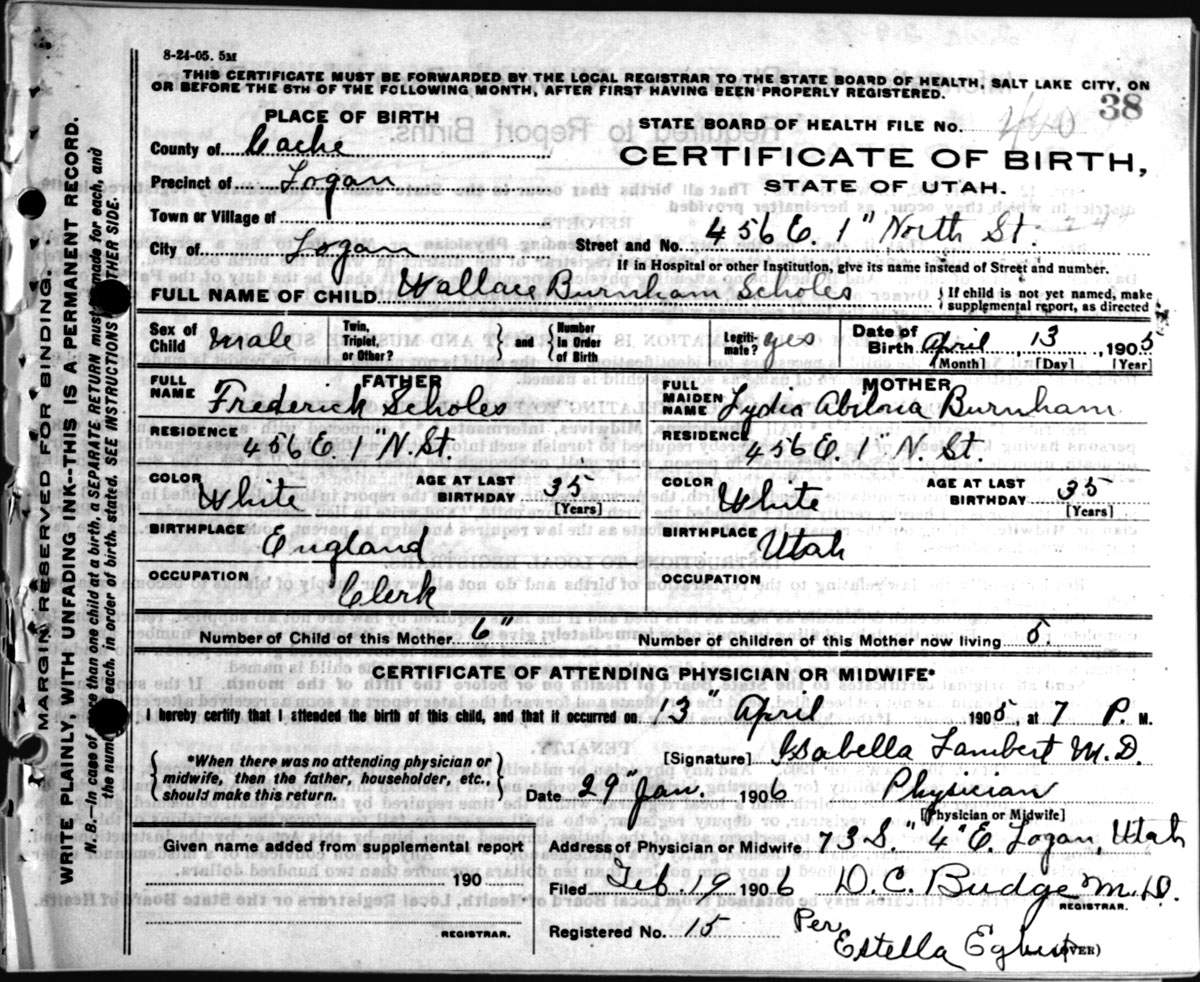 8-24-05. 5M
THIS CERTIFICATE MUST BE FORWARDED BY THE LOCAL REGISTRAR TO THE STATE BOARD OF HEALTH, SALT LAKE CITY, ON
OR BEFORE THE 5TH OF THE FOLLOWING MONTH, AFTER FIRST HAVING BEEN PROPERLY REGISTERED.
38
PLACE OF BIRTH
STATE BOARD OF HEALTH FILE No. 460
County of Cache
CERTIFICATE OF BIRTH,
Precinct of Logan
STATE OF UTAH.
Town or Village of
City of Logan
Street and No. 456 E. 1" North St.
If in Hospital or other Institution, give its name instead of Street and number.
FULL NAME OF CHILD. Wallace Burnham Scholes
{If child is not yet named, make
supplemental report, as directed
Sex of Child male
Twin, Triplet, or Other? } and { Number in Order of Birth
Legiti-mate? yes
Date of Birth April 13, 1905
(Month) [Day] [Year
FATHER
FULL NAME Frederick Scholes
RESIDENCE 456 E. 1" N. St.
COLOR White
AGE AT LAST BIRTHDAY 35
[Years]
BIRTHPLACE England
OCCUPATION Clerk
MOTHER
FULL MAIDEN NAME Lydia Burnham
RESIDENCE 456 E. 1" N. St.
COLOR White
AGE AT LAST BIRTHDAY 35
[Years]
BIRTHPLACE Utah
OCCUPATION
Number of Child of this Mother 6"
Number of children of this Mother now living 5
CERTIFICATE OF ATTENDING PHYSICIAN OR MIDWIFE*
I hereby certify that I attended the birth of this child, and that it occurred on 13" April 1905, at 7 P. M.
{ *When there was no attending physician or
midwife, then the father, householder, etc.,
should make this return. }
[Signature] Isabella Lambert M.D.
Date 29" Jan. 1906 Physician
[Physician or Midwife]
Given name added from supplemental report
190
REGISTRAR.
Address of Physician or Midwife 73 S. 4" E. Logan, Utah
Filed Feb. 19 1906 D. C. Budge M.D.
REGISTRAR.
Registered No. 15 Per Estella
(OVER)
MARGIN RESERVED FOR BINDING.
WRITE PLAINLY, WITH UNFADING INK—THIS IS A PERMANENT RECORD.
N. B.—In case of more than one child at a birth, a SEPARATE RETURN must be made for each, and
the number of each, in order of birth, stated. SEE INSTRUCTIONS OTHER SIDE.